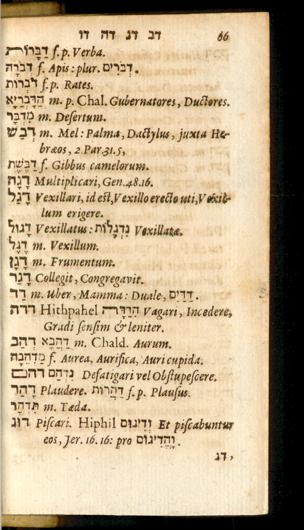 דב דג דה דו 66
דַּבָּרוֹת f. p. Verba.
דְּבֹרָה f. Apis: plur. דְּבֹרִים.
דֹּבְרוֹת f. p. Rates.
הַדָּבְרַיָּא m. p. Chal. Gubernatores, Ductores.
מִדְבָּר m. Desertum.
דְּבַשׁ m. Mel: Palma, Dactylus, juxta He-
bræos, 2 Par. 31.5,
דַּבֶּשֶׁת f. Gibbus camelorum.
דָּגָה Multiplicari, Gen. 48. 16.
דָּגַל Vexillari, id est, Vexillo erecto uti, Vexil-
lum erigere.
דָּגוּל Vexillatus: נִדְגָּלוֹת Vexillatæ.
דֶּגֶל m. Vexillum.
דָּגָן m. Frumentum.
דָּגַר Collegit, Congregavit.
דַּד m. Uber, Mamma: Duale, דַּדַּיִם.
דדה Hithpahel Vagari, Incedere,
Gradi sensim & leniter.
דהב דַּהֲבָא m. Chald. Aurum.
מַדְהֵבָה f. Aurea, Aurifica, Auri cupida.
דהם נִדְהָם Defatigari vel Obstupescere.
דָּהַר Plaudere. דַּהֲרוֹת f. p. Plausus.
תִּדְהָר m. Tæda.
דוג Piscari. Hiphil וְדִיגוּם Et piscabuntur
eos, Jer. 16. 16: pro
דג,